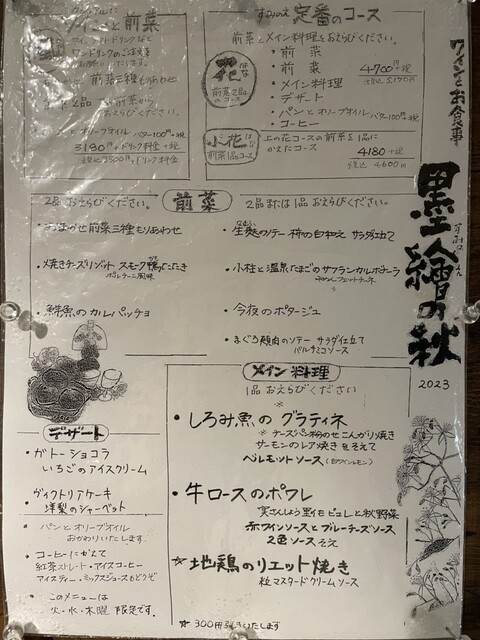 ワインとお食事
墨繪の秋
すみのえ
2023
カジュアルに
ワインと前菜
ワンドリンクのご注文を
お願いいたします。
前菜三種もりあわせ
パンとオリーブオイル バター100円+税
3180円+ドリンク料金
税込3500円+ドリンク料金
すみのえ 定番のコース
前菜とメイン料理をおえらびください。
花 はな
前菜2品のコース
・前菜
・前菜
・メイン料理
・デザート
・パンとオリーブオイル バター100円+税
・コーヒー
4700円+税
税込 5170円
小花 こはな
前菜1品コース
上の花コースの前菜を1品に
かえたコース
4180+税
税込 4600円
前菜
2品 おえらびください。
2品または1品 おえらびください。
・おまかせ前菜三種もりあわせ
・焼きチーズリゾット スモーク鴨のたたき
ボルチーニ風味
・鮮魚のカルパッチョ
・生麩のソテー 柿の白和え サラダ仕立て
・小柱と温泉たまごのサフランカルボナーラ
・今夜のポタージュ
・まぐろ頬肉のソテー サラダ仕立て
バルサミコソース
メイン料理
1品 おえらびください
・しろみ魚の グラティネ
※チーズパン粉のせこんがり焼き
サーモンのレア焼きをそえて
ベルモットソース(白ワインレモン)
・牛ロースのポワレ
実さんしょう里イモピュレと秋野菜
赤ワインソースとブルーチーズソース
2色ソースそえ
☆地鶏のリエット焼き
粒マスタードクリームソース
☆300円引きいたします
デザート
・ガトーショコラ
いちごのアイスクリーム
・ヴィクトリアケーキ
洋梨のシャーベット
・パンとオリーブオイル
おかわりいたします
・コーヒーにかえて
紅茶ストレート・アイスコーヒー
アイスティー・ミックスジュースもどうぞ
・このメニューは
火・水・木曜 限定です。